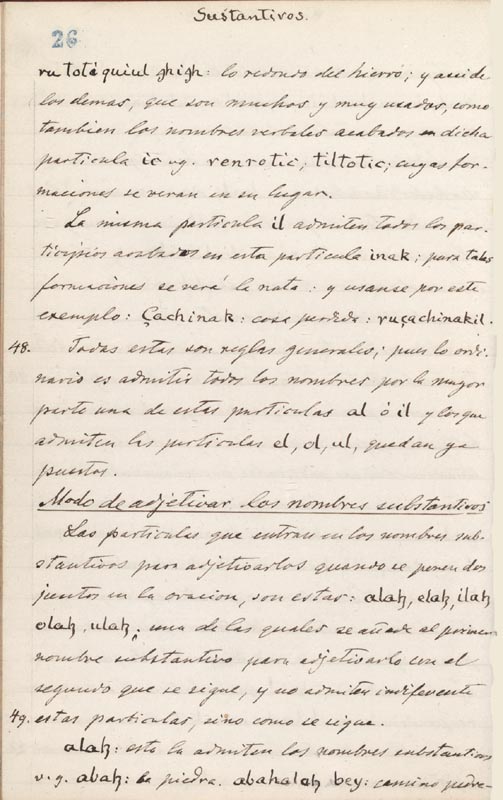 Sustantivos.
26
ru totó quiul ghigh: lo redondo del hierro; y assi de
los demas, que son muchos y muy usados, como
tambien los nombres verbales acabados en dicha
particula ic vg. renrotic; tiltotic; cuyas for-
maciones se veran en su lugar.
La misma particula il admiten todos los par-
ticipios acabados en esta particula inak; para tales
formaciones se verá la nota: y usanse por este
exemplo: Çachinak: cosa perdida: ruçachinakil.
48. Todas estas son reglas generales; pues lo ordi-
nario es admitir todos los nombres por la mayor
parte una de estas particulas al ó il y los que
admiten las particulas el, ol, ul, quedan ya
puestos.
Modo de adjetivar los nombres substantivos
Las particulas que entran en los nombres sub-
stantivos para adjetivarlos quando se ponen dos
juntos en la oracion, son estas: alaꜩ, elaꜩ, ilaꜩ
olaꜩ, ulaꜩ; una de las quales se añade al primer
nombre substantivo para adjetivarlo con el
segundo que se sigue, y no admiten indiferente
49. estas particulas, sino como se sigue.
alaꜩ: esta la admiten los nombres substantivos
v. g. abaꜩ: la piedra. abahalaꜩ bey: camino pedre-